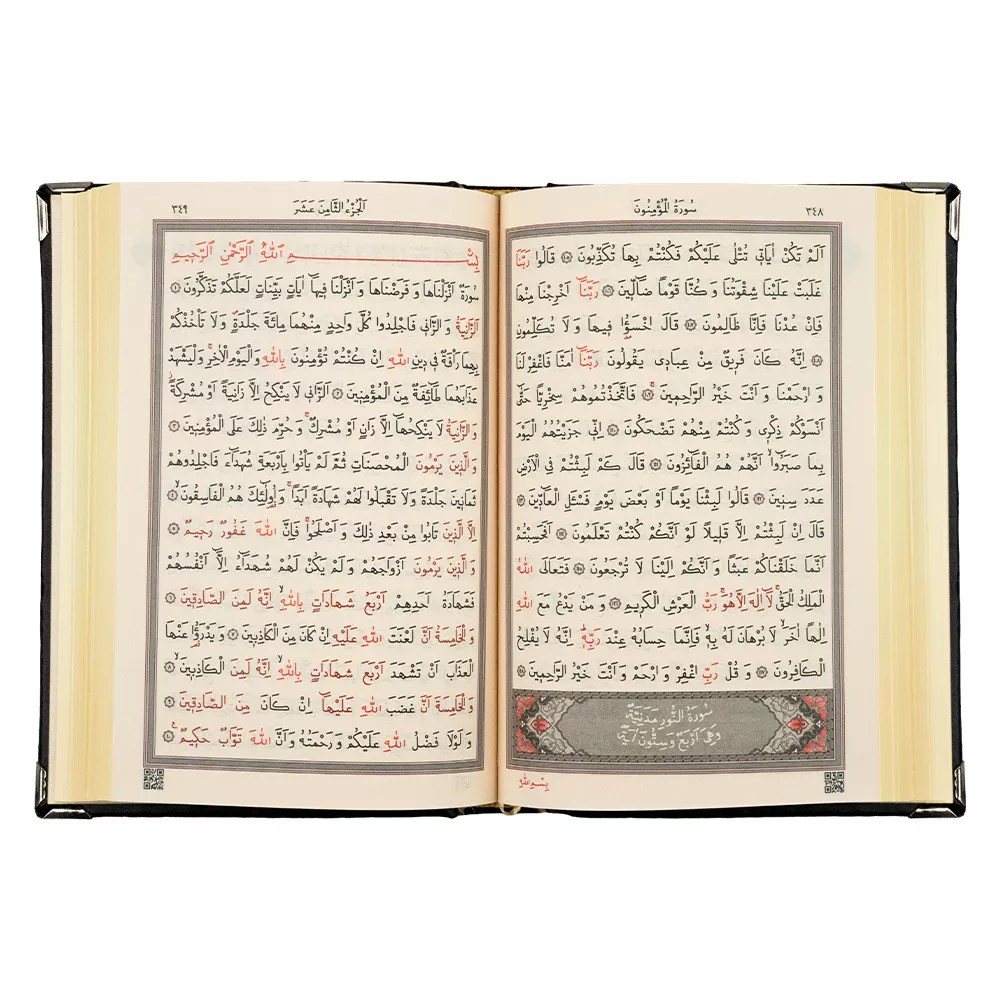 ٣٤٨
سُورَةُ الْمُؤْمِنُونَ
اَلَمْ تَكُنْ اٰيَاتٖي تُتْلٰى عَلَيْكُمْ فَكُنْتُمْ بِهَا تُكَذِّبُونَ ١٠٥ قَالُوا رَبَّنَا
غَلَبَتْ عَلَيْنَا شِقْوَتُنَا وَكُنَّا قَوْمًا ضَٓالّٖينَ ١٠٦ رَبَّنَٓا اَخْرِجْنَا مِنْهَا
فَاِنْ عُدْنَا فَاِنَّا ظَالِمُونَ ١٠٧ قَالَ اخْسَؤُ۫ا فٖيهَا وَلَا تُكَلِّمُونِ
١٠٨ اِنَّهُ كَانَ فَرٖيقٌ مِنْ عِبَادٖي يَقُولُونَ رَبَّنَٓا اٰمَنَّا فَاغْفِرْ لَنَا
وَارْحَمْنَا وَاَنْتَ خَيْرُ الرَّاحِمٖينَ ١٠٩ فَاتَّخَذْتُمُوهُمْ سِخْرِيًّا حَتّٰٓى
اَنْسَوْكُمْ ذِكْرٖي وَكُنْتُمْ مِنْهُمْ تَضْحَكُونَ ١١٠ اِنّٖي جَزَيْتُهُمُ الْيَوْمَ
بِمَا صَبَرُٓوا اَنَّهُمْ هُمُ الْفَٓائِزُونَ ١١١ قَالَ كَمْ لَبِثْتُمْ فِي الْاَرْضِ
عَدَدَ سِنٖينَ ١١٢ قَالُوا لَبِثْنَا يَوْمًا اَوْ بَعْضَ يَوْمٍ فَسْـَٔلِ الْعَٓادّٖينَ ١١٣
قَالَ اِنْ لَبِثْتُمْ اِلَّا قَلٖيلًا لَوْ اَنَّكُمْ كُنْتُمْ تَعْلَمُونَ ١١٤ اَفَحَسِبْتُمْ
اَنَّمَا خَلَقْنَاكُمْ عَبَثًا وَاَنَّكُمْ اِلَيْنَا لَا تُرْجَعُونَ ١١٥ فَتَعَالَى اللّٰهُ
الْمَلِكُ الْحَقُّۚ لَٓا اِلٰهَ اِلَّا هُوَۚ رَبُّ الْعَرْشِ الْكَرٖيمِ ١١٦ وَمَنْ يَدْعُ مَعَ اللّٰهِ
اِلٰهًا اٰخَرَۙ لَا بُرْهَانَ لَهُ بِهٖۙ فَاِنَّمَا حِسَابُهُ عِنْدَ رَبِّهٖؕ اِنَّهُ لَا يُفْلِحُ
الْكَافِرُونَ ١١٧ وَقُلْ رَبِّ اغْفِرْ وَارْحَمْ وَاَنْتَ خَيْرُ الرَّاحِمٖينَ ١١٨
سُورَةُ النُّورِ مَدَنِيَّةٌ
وَهِيَ اَرْبَعٌ وَسِتُّونَ اٰيَةً
بِسْمِ اللّٰهِ
اَلْجُزْءُ الثَّامِنَ عَشَرَ
٣٤٩
بِسْمِ اللّٰهِ الرَّحْمٰنِ الرَّحٖيمِ
سُورَةٌ اَنْزَلْنَاهَا وَفَرَضْنَاهَا وَاَنْزَلْنَا فٖيهَٓا اٰيَاتٍ بَيِّنَاتٍ لَعَلَّكُمْ تَذَكَّرُونَ ١
اَلزَّانِيَةُ وَالزَّانٖي فَاجْلِدُوا كُلَّ وَاحِدٍ مِنْهُمَا مِائَةَ جَلْدَةٍۖ وَلَا تَأْخُذْكُمْ
بِهِمَا رَأْفَةٌ فٖي دٖينِ اللّٰهِ اِنْ كُنْتُمْ تُؤْمِنُونَ بِاللّٰهِ وَالْيَوْمِ الْاٰخِرِۚ وَلْيَشْهَدْ
عَذَابَهُمَا طَٓائِفَةٌ مِنَ الْمُؤْمِنٖينَ ٢ اَلزَّانٖي لَا يَنْكِحُ اِلَّا زَانِيَةً اَوْ مُشْرِكَةًؗ
وَالزَّانِيَةُ لَا يَنْكِحُهَٓا اِلَّا زَانٍ اَوْ مُشْرِكٌۚ وَحُرِّمَ ذٰلِكَ عَلَى الْمُؤْمِنٖينَ ٣
وَالَّذٖينَ يَرْمُونَ الْمُحْصَنَاتِ ثُمَّ لَمْ يَأْتُوا بِاَرْبَعَةِ شُهَدَٓاءَ فَاجْلِدُوهُمْ
ثَمَانٖينَ جَلْدَةً وَلَا تَقْبَلُوا لَهُمْ شَهَادَةً اَبَدًاۚ وَاُو۬لٰٓئِكَ هُمُ الْفَاسِقُونَۙ ٤
اِلَّا الَّذٖينَ تَابُوا مِنْ بَعْدِ ذٰلِكَ وَاَصْلَحُواۚ فَاِنَّ اللّٰهَ غَفُورٌ رَحٖيمٌ ٥
وَالَّذٖينَ يَرْمُونَ اَزْوَاجَهُمْ وَلَمْ يَكُنْ لَهُمْ شُهَدَٓاءُ اِلَّٓا اَنْفُسُهُمْ
فَشَهَادَةُ اَحَدِهِمْ اَرْبَعُ شَهَادَاتٍ بِاللّٰهِۙ اِنَّهُ لَمِنَ الصَّادِقٖينَ ٦
وَالْخَامِسَةُ اَنَّ لَعْنَتَ اللّٰهِ عَلَيْهِ اِنْ كَانَ مِنَ الْكَاذِبٖينَ ٧ وَيَدْرَؤُ۬ا عَنْهَا
الْعَذَابَ اَنْ تَشْهَدَ اَرْبَعَ شَهَادَاتٍ بِاللّٰهِۙ اِنَّهُ لَمِنَ الْكَاذِبٖينَۙ ٨
وَالْخَامِسَةَ اَنَّ غَضَبَ اللّٰهِ عَلَيْهَٓا اِنْ كَانَ مِنَ الصَّادِقٖينَ ٩
وَلَوْلَا فَضْلُ اللّٰهِ عَلَيْكُمْ وَرَحْمَتُهُ وَاَنَّ اللّٰهَ تَوَّابٌ حَكٖيمٌ ١٠